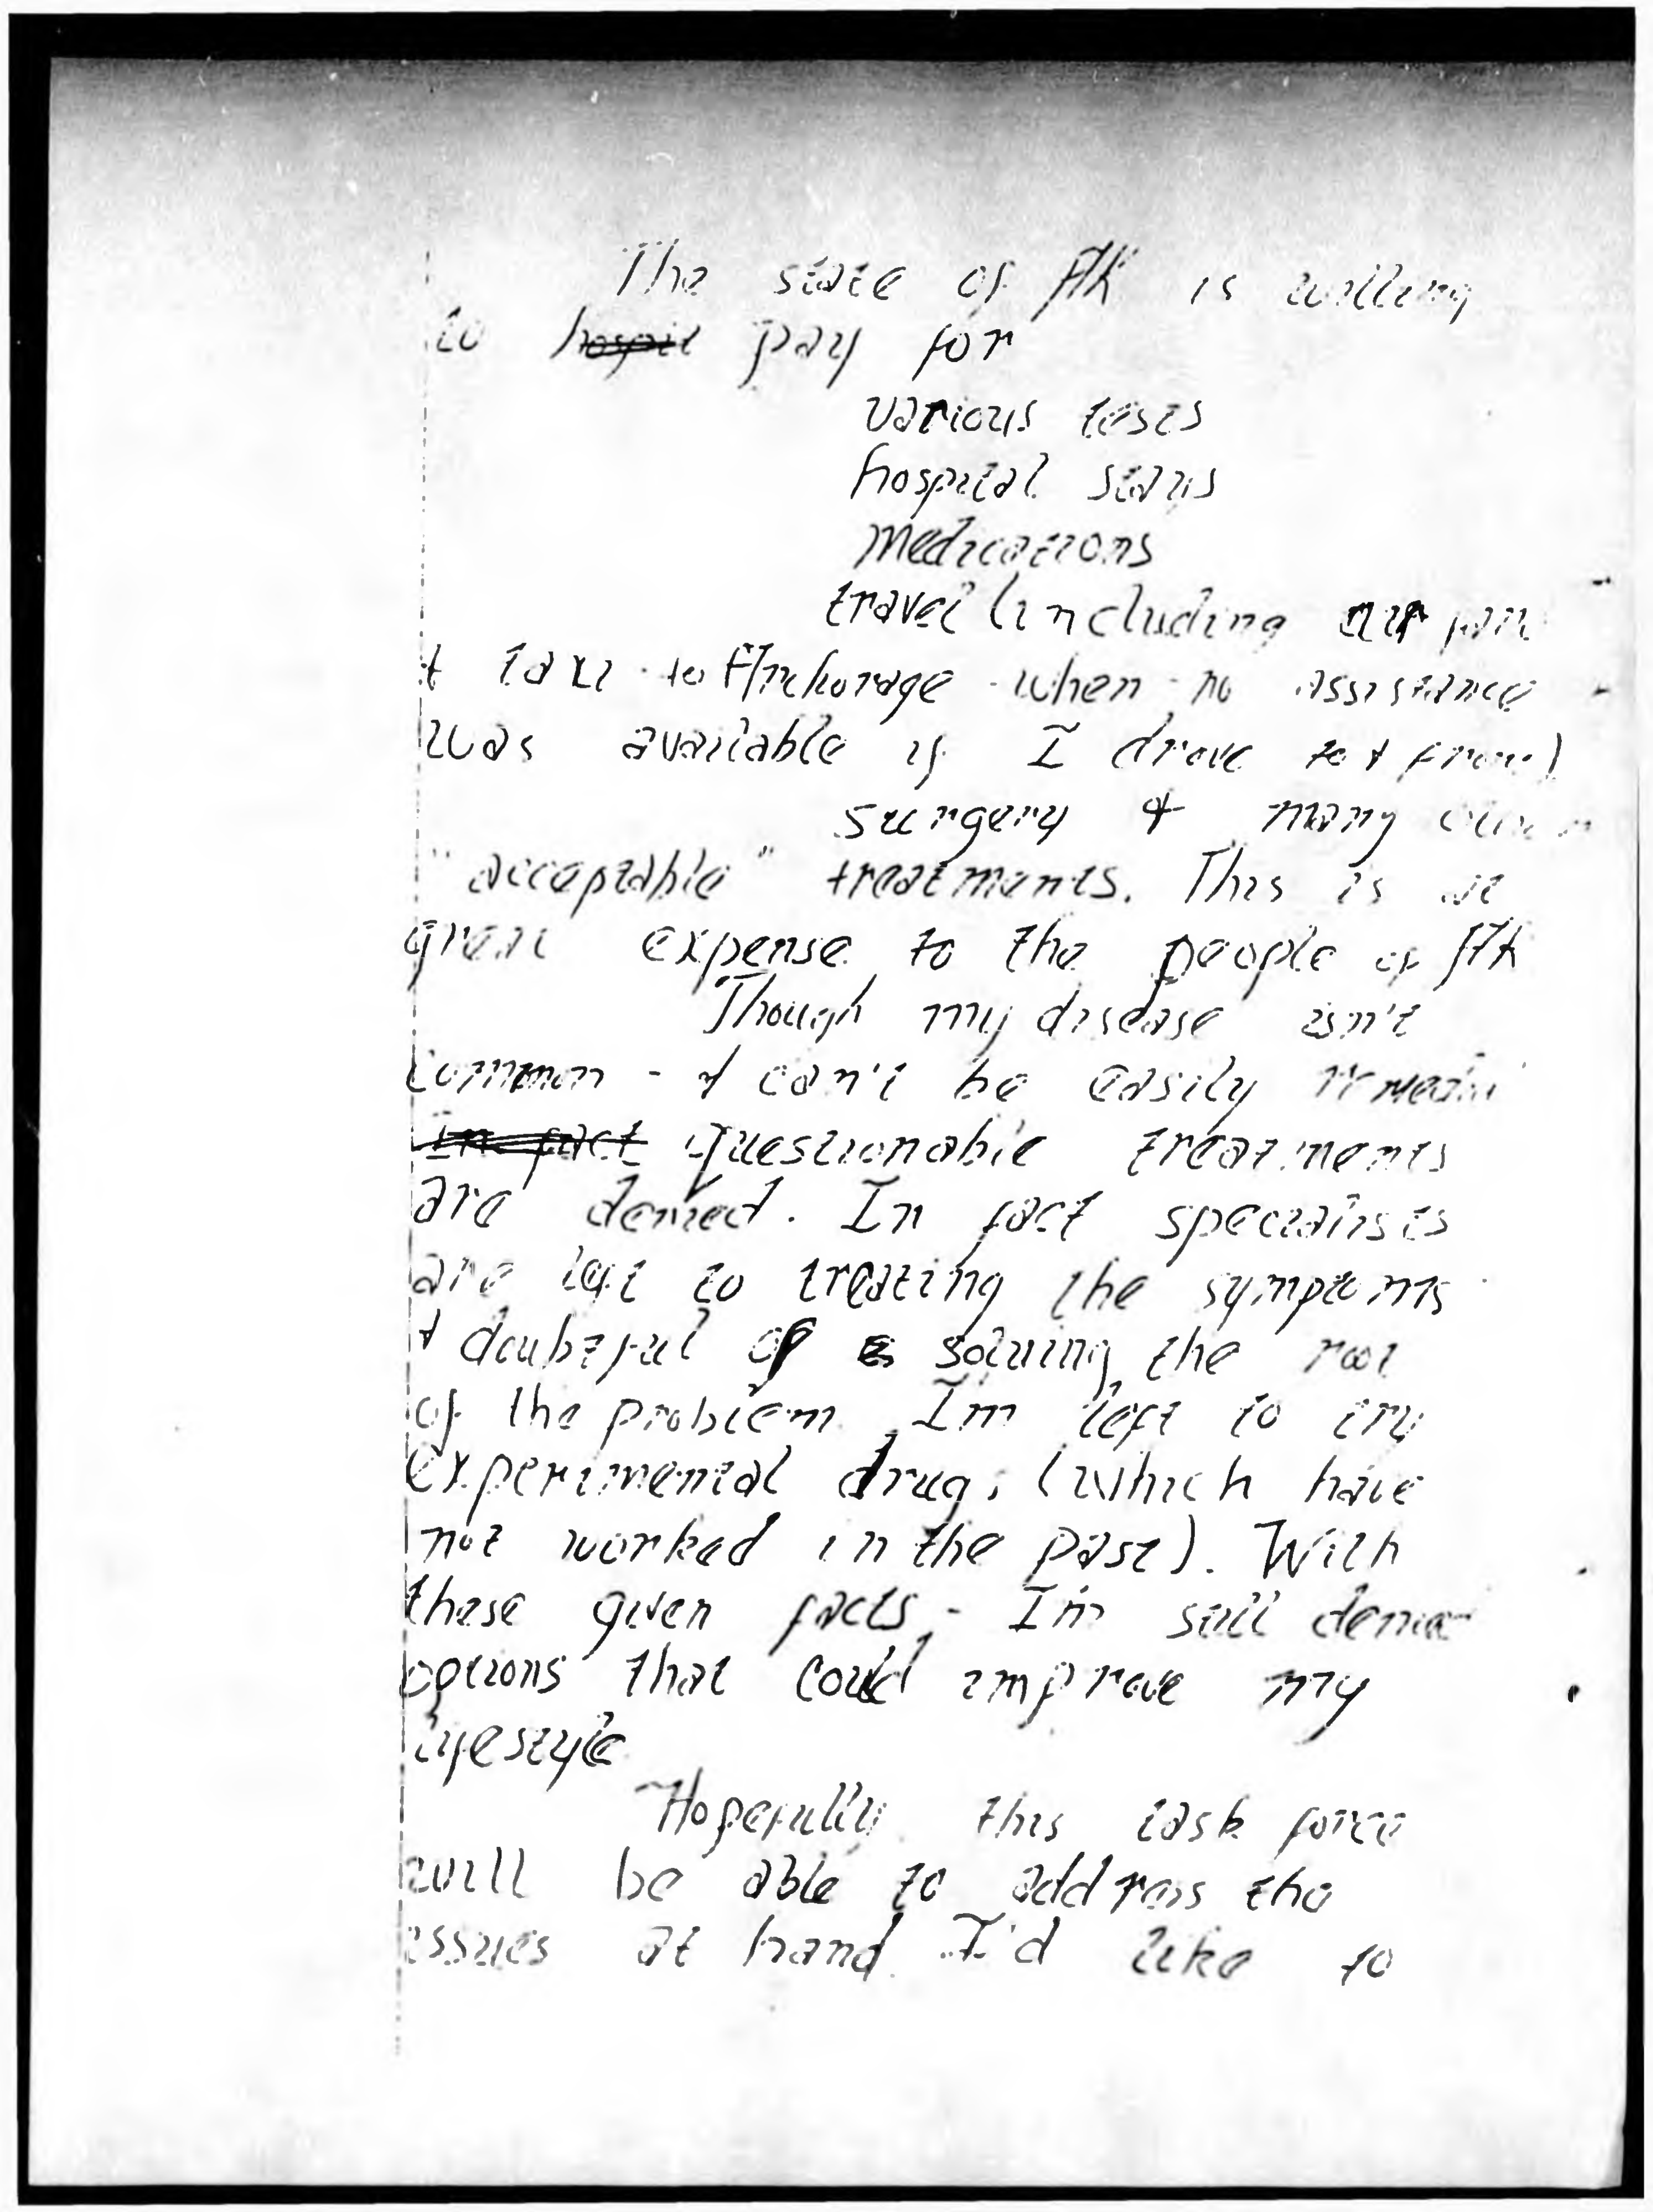 The state of AK is willing
to hospit pay for
various tests
hospital stays
medications
travel (including air
& taxi - to Anchorage - when no assistance
was available if I drove to & from)
surgery & many other
"acceptable" treatments. This is at
great expense to the people of AK
Though my disease isn't
common - & can't be easily
In fact questionable treatments
are denied. In fact specialists
are left to treating the symptoms
& doubtful of solving the root
of the problem. I'm left to try
experimental drugs (which have
not worked in the past). With
these given facts - I'm still
options that could improve my
lifestyle
Hopefully this task force
will be able to address the
issues at hand. I'd like to